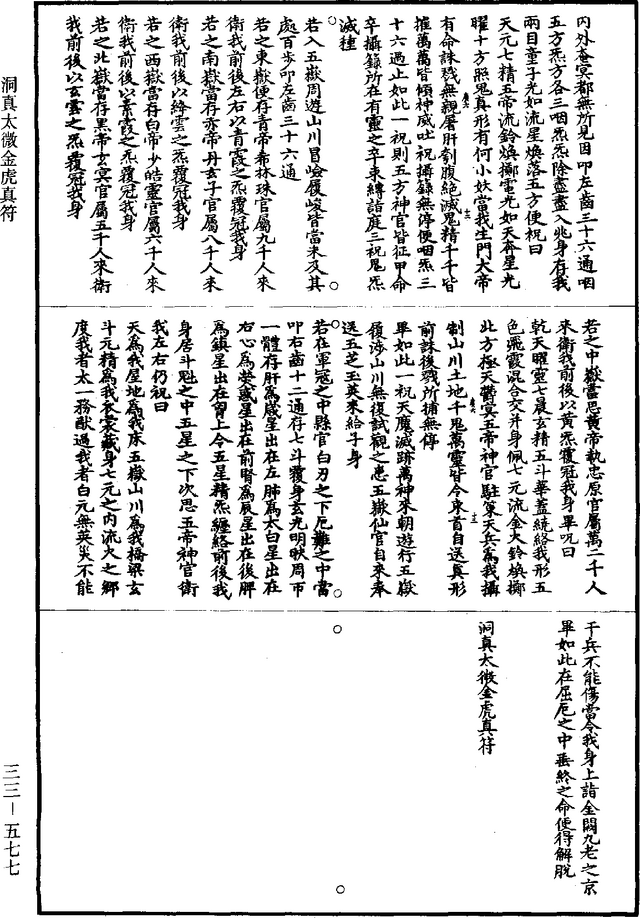 洞真太微金虎真符
三三—五七七
內外庵冥都無所見因叩左齒三十六通咽
五方炁方各三咽炁炁除盡盡入兆身存我
兩目童子光如流星煥落五方便祝曰
天元七精五帝流鈴煥擲電光如天奔星光
曜十方照鬼真形有何小妖當我生門大帝
有命誅戮無親屠肝刳腹絕滅鬼精千千皆
摧萬萬皆傾神威吐祝攝錄無停便咽炁三
十六過止如此一祝則五方神官皆征甲命
卒攝錄所在有靈之卒束縛詣庭三祝鬼炁
滅種
若入五嶽周遊山川冒嶮履峻皆當未及其
處百步叩左齒三十六通
若之東嶽便存青帝希林珠官屬九千人來
衛我前後左右以青霞之炁覆冠我身
若之南嶽當存赤帝丹玄子官屬八千人來
衛我前後以絳雲之炁覆冠我身
若之西嶽當存白帝少皓靈官屬六千人來
衛我前後以素霞之炁覆冠我身
若之北嶽當存黑帝玄冥官屬五千人來衛
我前後以玄雲之炁覆冠我身
若之中嶽當思黃帝執忠原官屬萬二千人
來衛我前後以黃炁覆冠我身畢咒曰
乾天曜靈七晨玄精五斗華蓋繞絡我形五
色飛霞混合交并身佩七元流金火鈴煥擲
此方極天鬱冥五帝神官駐策天兵為我攝
制山川土地千鬼萬靈皆令束首自送真形
前誅後戮所捕無停
畢如此一祝天魔滅跡萬神來朝遊行五嶽
履涉山川無復試觀之患五嶽仙官自來奉
送五芝玉英來給子身
若在軍寇之中縣官白刃之下厄難之中當
叩右齒十二通存七斗覆身玄光明映周帀
一體存肝為歲星出在左肺為太白星出在
右心為熒惑星出在前腎為辰星出在後脾
為鎮星出在胷上令五星精炁纏絡前後我
身居斗魁之中五星之下次思五帝神官衛
我左右仍祝曰
天為我屋地為我牀五嶽山川為我橋梁玄
斗元精為我衣裳藏身七元之內流火之鄉
度我者太一務猷過我者白元無英災不能
干兵不能傷當令我身上詣金闕九老之京
畢如此在屈厄之中垂終之命便得解脫
洞真太微金虎真符